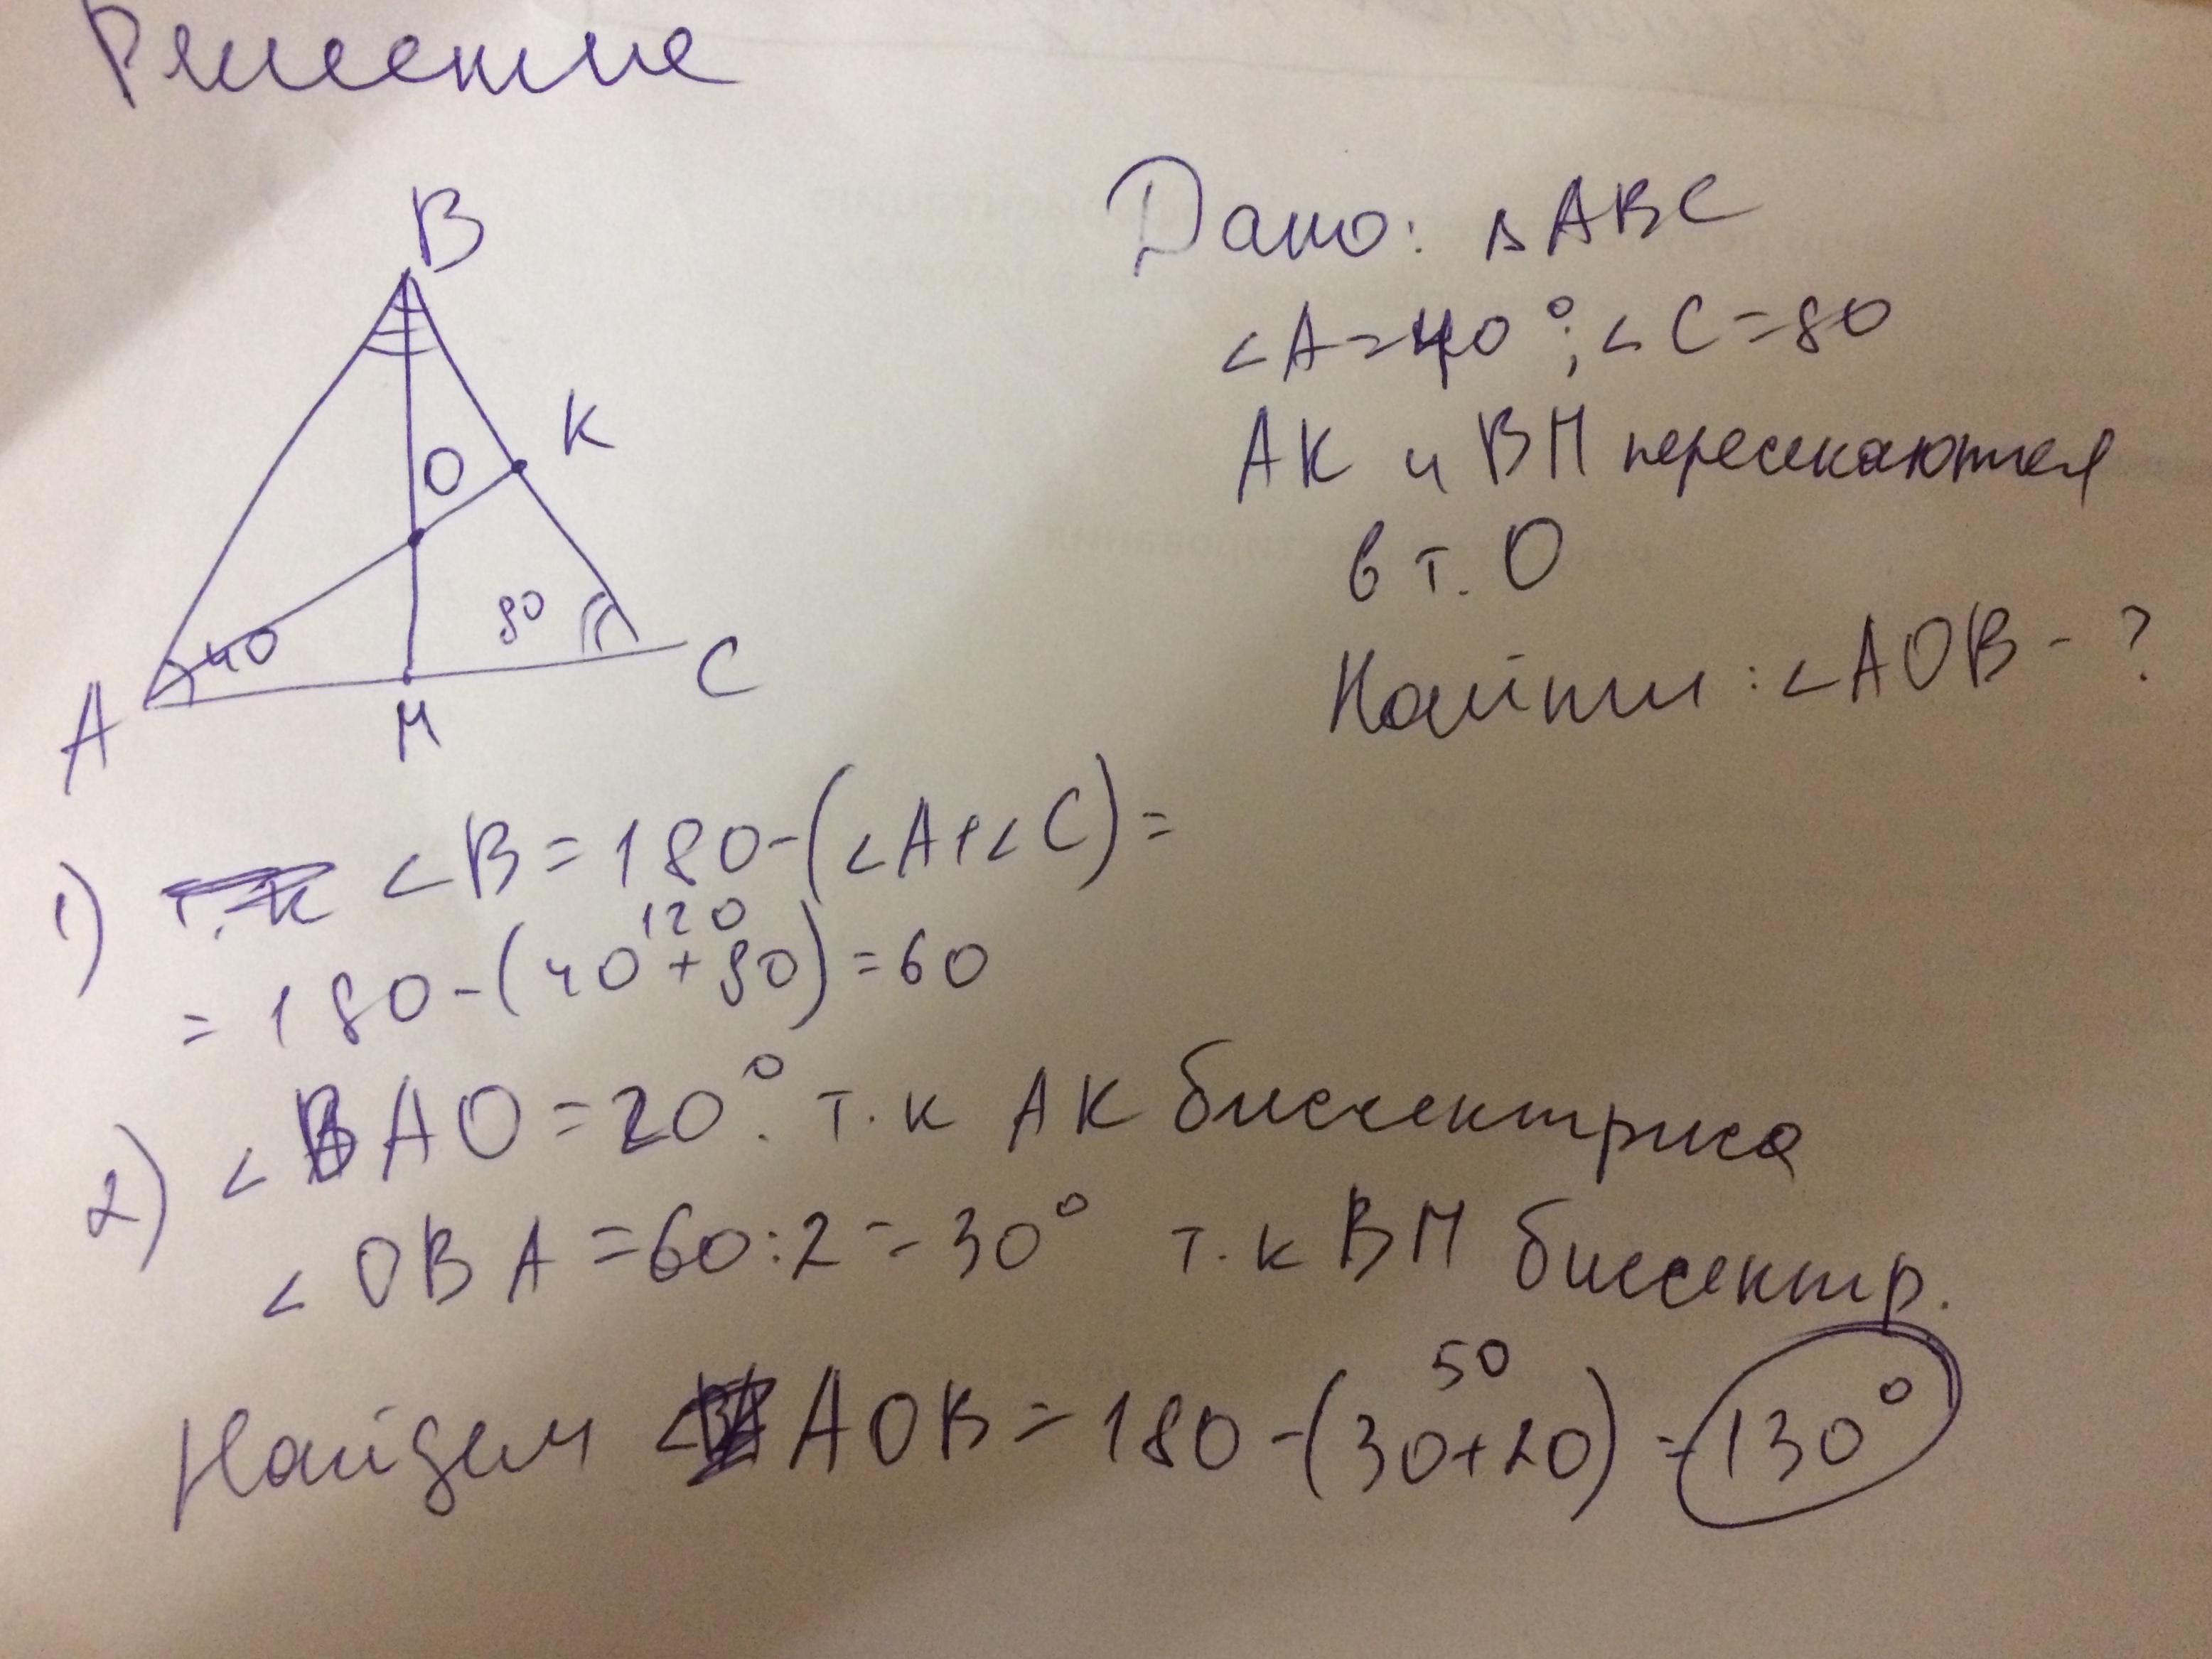 Решение
B
K
O
40
80
A
M
C
Дано: ΔABC
<A=40°; <C=80
AK и BM пересекаются
в т. O
Найти: <AOB - ?
1) <B=180-(<A+<C)=
120
=180-(40+80)=60
2) <BAO=20°. т.к AK биссектриса
<OBA=60:2=30° т.к BM биссектр.
50
Найдем <AOB=180-(30+20)=130°